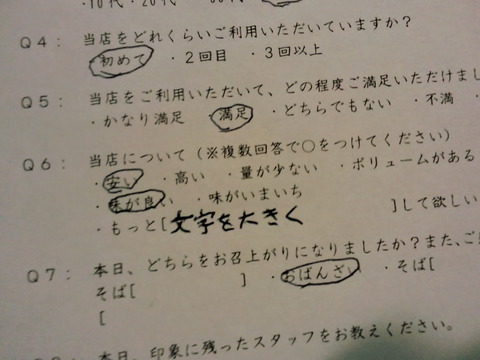 ・10代・20代
Q4： 当店をどれくらいご利用いただいていますか？
初めて ・2回目 ・3回以上
Q5： 当店をご利用いただいて、どの程度ご満足いただけまし
・かなり満足 ・満足 ・どちらでもない ・不満
Q6： 当店について（※複数回答で○をつけてください）
・安い ・高い ・量が少ない ・ボリュームがある
・味が良い ・味がいまいち
・もっと[文字を大きく ]して欲しい
Q7： 本日、どちらをお召上がりになりましたか？また、ご
そば[ ] ・おばんざい ・そば[
[
本日、印象に残ったスタッフをお教えください。